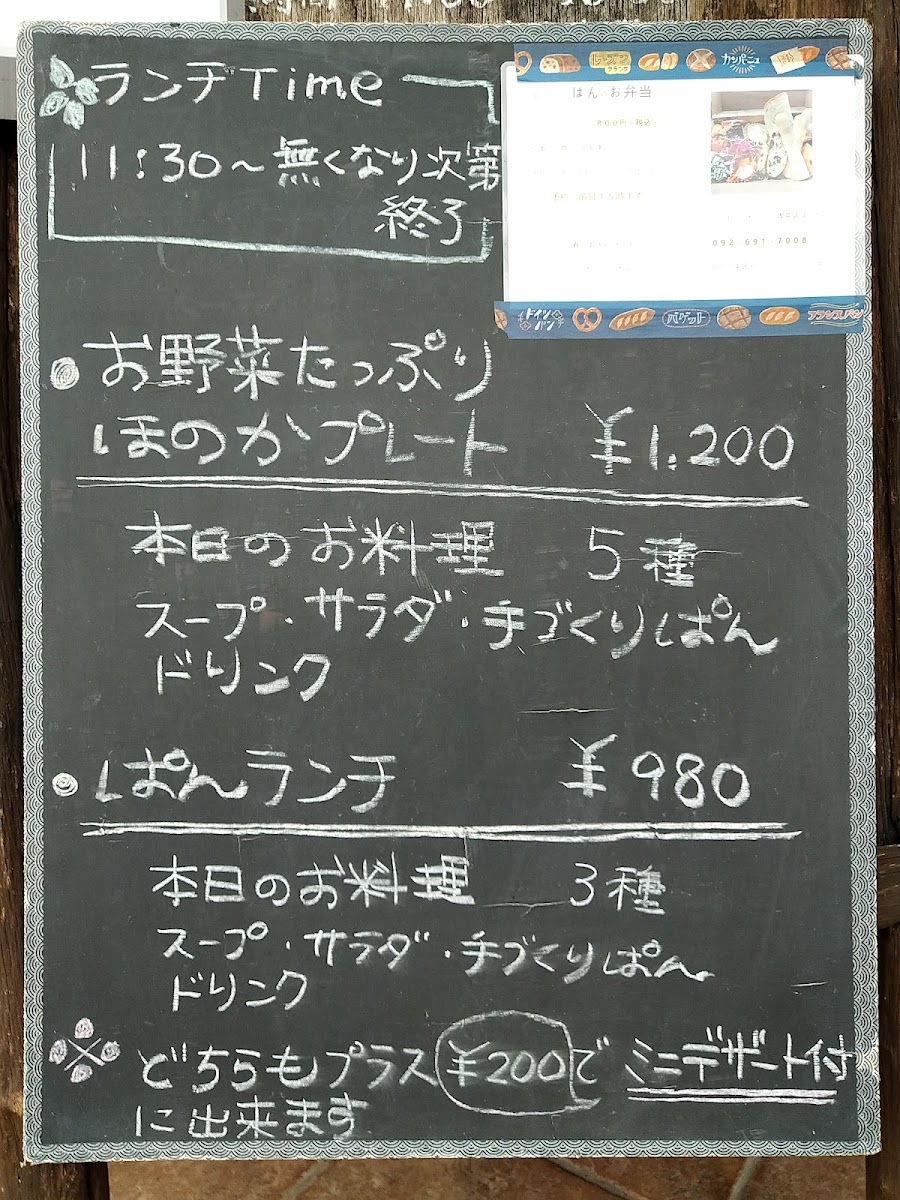 ランチTime
11:30～無くなり次第
終了
ルヴァン
フランス
カンパーニュ
ぱん お弁当
800円(税込)
092-691-7008
ドイツ
パン
バゲット
フランスパン
お野菜たっぷり
ほのかプレート ¥1.200
本日のお料理 5種
スープ・サラダ・手づくりぱん
ドリンク
ぱんランチ ¥980
本日のお料理 3種
スープ・サラダ・手づくりぱん
ドリンク
※ どちらもプラス¥200で ミニデザート付
に出来ます